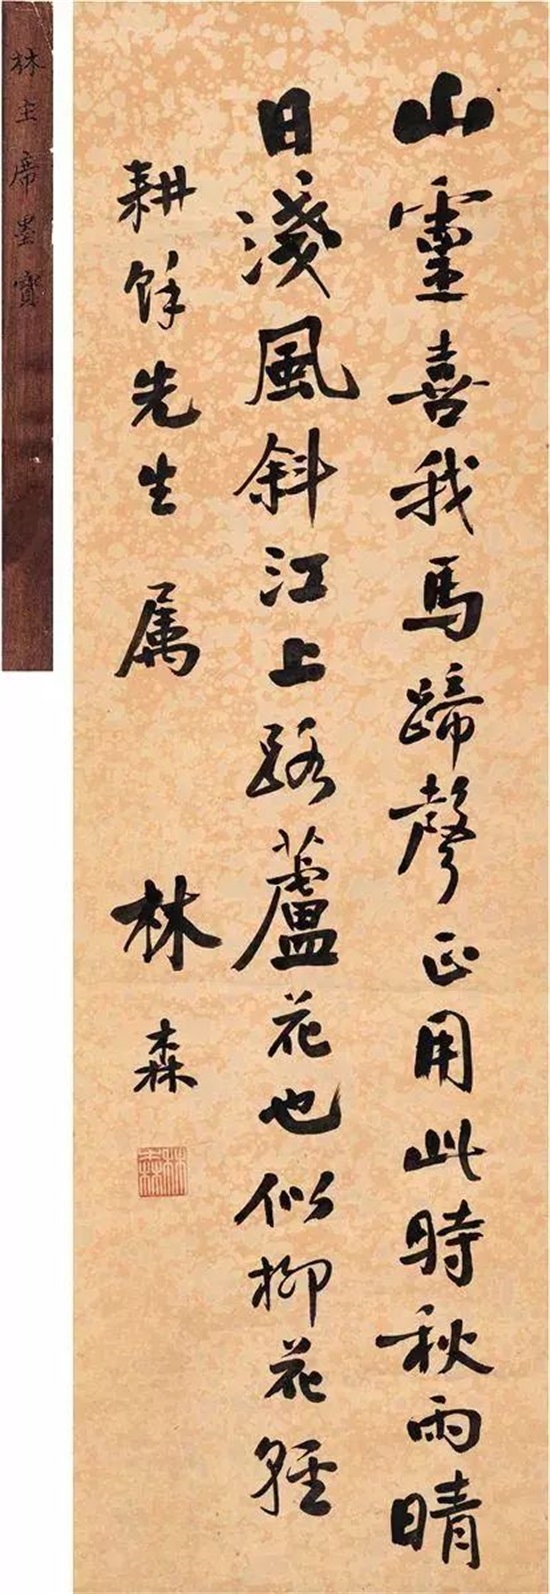 山靈喜我馬蹄聲正用此時秋雨晴
日淺風斜江上路蘆花也似柳花輕
耕餘先生 属 林森
林森
林主席墨寶